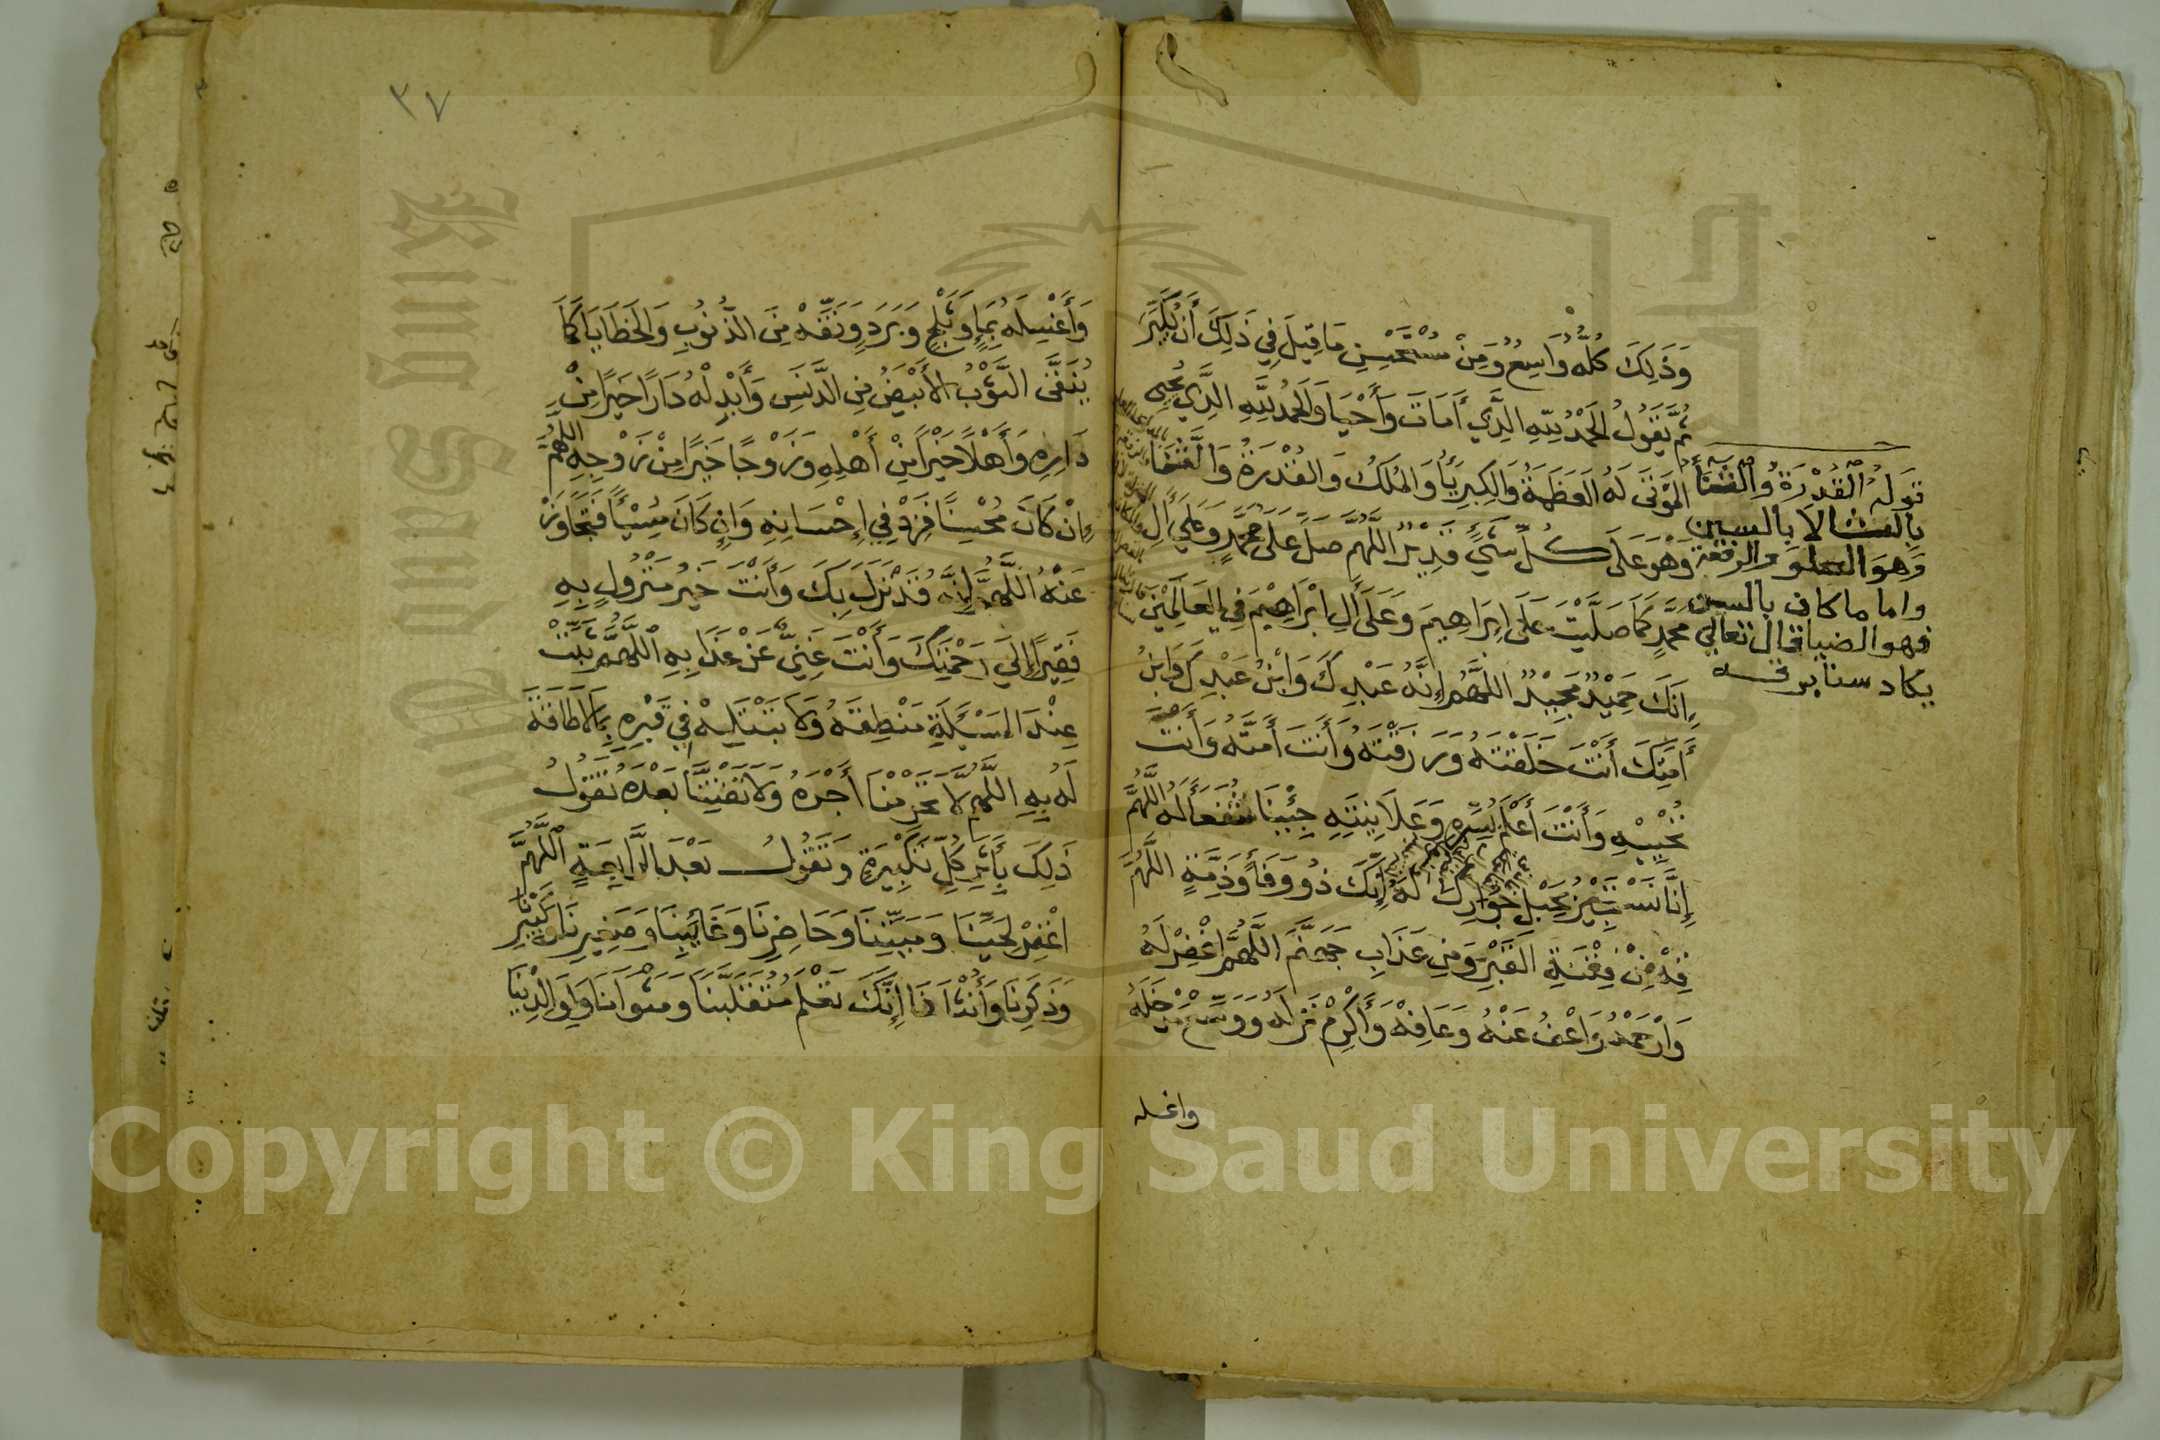 وَذَلِكَ كُلُّهُ وَاسِعٌ وَمِنْ مُسْتَحْسِنِ مَا قِيلَ فِي ذَلِكَ أَنْ يُكَبِّرَ
ثُمَّ يَقُولُ الحَمْدُ لِلَّهِ الَّذِي أَمَاتَ وَأَحْيَا وَالحَمْدُ لِلَّهِ الَّذِي يُحْيِي
المَوْتَى لَهُ العَظَمَةُ وَالكِبْرِيَاءُ وَالمُلْكُ وَالقُدْرَةُ وَالثَّنَاءُ
وَهُوَ عَلَى كُلِّ شَيْءٍ قَدِيرٌ اللَّهُمَّ صَلِّ عَلَى مُحَمَّدٍ وَعَلَى أَلِ
مُحَمَّدٍ كَمَا صَلَّيْتَ عَلَى إِبْرَاهِيمَ وَعَلَى أَلِ ابْرَاهِيْمَ فِي العَالَمِيْنَ
إِنَّكَ حَمِيْدٌ مَجِيْدٌ اللَّهُمَّ إِنَّهُ عَبْدُكَ وَابْنُ عَبْدِكَ وَابْنُ
أَمَتِكَ أَنْتَ خَلَقْتَهُ وَرَزَقْتَهُ وَأَنْتَ أَمَتَّهُ وَأَنْتَ
تُحْيِيْهِ وَأَنْتَ أَعْلَمُ بِسِرِّهِ وَعَلَانِيَتِهِ جِئْنَا شُفَعَاءَ لَهُ اللَّهُمَّ
إِنَّا نَسْتَجِيْرُ بِحَبْلِ جِوَارِكَ لَهُ إِنَّكَ ذُو وَفَاءٍ وَذِمَّةٍ اللَّهُمَّ
قِهْ مِنْ فِتْنَةِ القَبْرِ وَمِنْ عَذَابِ جَهَنَّمَ اللَّهُمَّ اغْفِرْ لَهُ
وَارْحَمْهُ وَاعْفُ عَنْهُ وَعَافِهْ وَأَكْرِمْ نُزُلَهُ وَوَسِّعْ مَدْخَلَهُ
واغسله
قوله القدرة والثناء
بالثا لا بالسين
وهو العلو والرفعة
واما ما كان بالسين
فهو الضيا قال تعالي
يكاد سنا برقه
٣٧
وَأَغْسِلْهُ بِمَاءٍ وَثَلْجٍ وَبَرَدٍ وَنَقِّهْ مِنَ الذُّنُوبِ وَالخَطَايَا كَمَا
يُنَقَّى الثَّوْبُ الأَبْيَضُ مِنَ الدَّنَسِ وَأَبْدِلْهُ دَارًا خَيْرًا مِنْ
دَارِهِ وَأَهْلًا خَيْرًا مِنْ أَهْلِهِ وَزَوْجًا خَيْرًا مِنْ زَوْجِهِ اللَّهُمَّ
إِنْ كَانَ مُحْسِنًا فَزِدْ فِي إِحْسَانِهِ وَإِنْ كَانَ مُسِيْئًا فَتَجَاوَزْ
عَنْهُ اللَّهُمَّ إِنَّهُ قَدْ نَزَلَ بِكَ وَأَنْتَ خَيْرُ مَنْزُولٍ بِهِ
فَقِيْرًا إِلَى رَحْمَتِكَ وَأَنْتَ غَنِيٌّ عَنْ عَذَابِهِ اللَّهُمَّ ثَبِّتْ
عِنْدَ المَسْئَلَةِ مَنْطِقَهُ وَلَا تَبْتَلِيْهْ فِي قَبْرِهِ بِمَا لَا طَاقَةَ
لَهُ بِهِ اللَّهُمَّ لَا تَحْرِمْنَا أَجْرَهُ وَلَا تَفْتِنَّا بَعْدَهُ تَقُوْلُ
ذَلِكَ بِأَثَرِ كُلِّ تَكْبِيْرَةٍ وَتَقُوْلُ بَعْدَ الرَّابِعَةِ اللَّهُمَّ
اغْفِرْ لِحَيِّنَا وَمَيِّتِنَا وَحَاضِرِنَا وَغَائِبِنَا وَصَغِيرِنَا وَكَبِيْرِنَا
وَذَكَرِنَا وَأُنْثَانَا إِنَّكَ تَعْلَمُ مُتَقَلَّبَنَا وَمَثْوَانَا وَلِوَالِدِيْنَا
Copyright © King Saud University